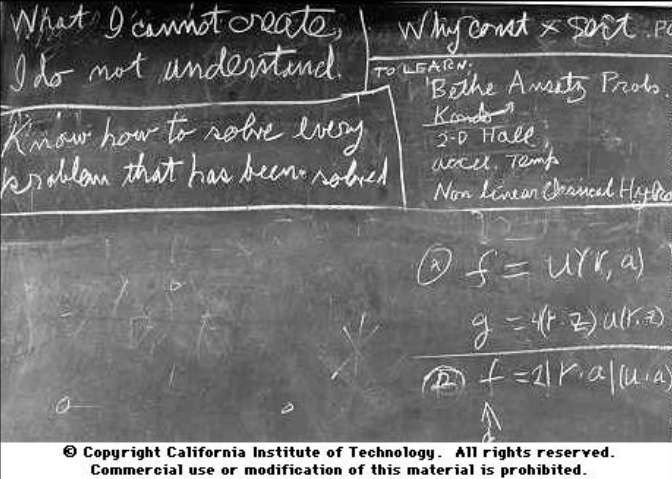 What I cannot create,
I do not understand.
Know how to solve every
problem that has been solved
Why const × sort . PO
TO LEARN:
Bethe Ansatz Probs.
Kondo
2-D Hall
accel. Temp
Non linear Classical Hydro
f = u(r, a)
g = 4(r·z) u(r.z)
f = 2|r·a|(u·a)
© Copyright California Institute of Technology. All rights reserved.
Commercial use or modification of this material is prohibited.